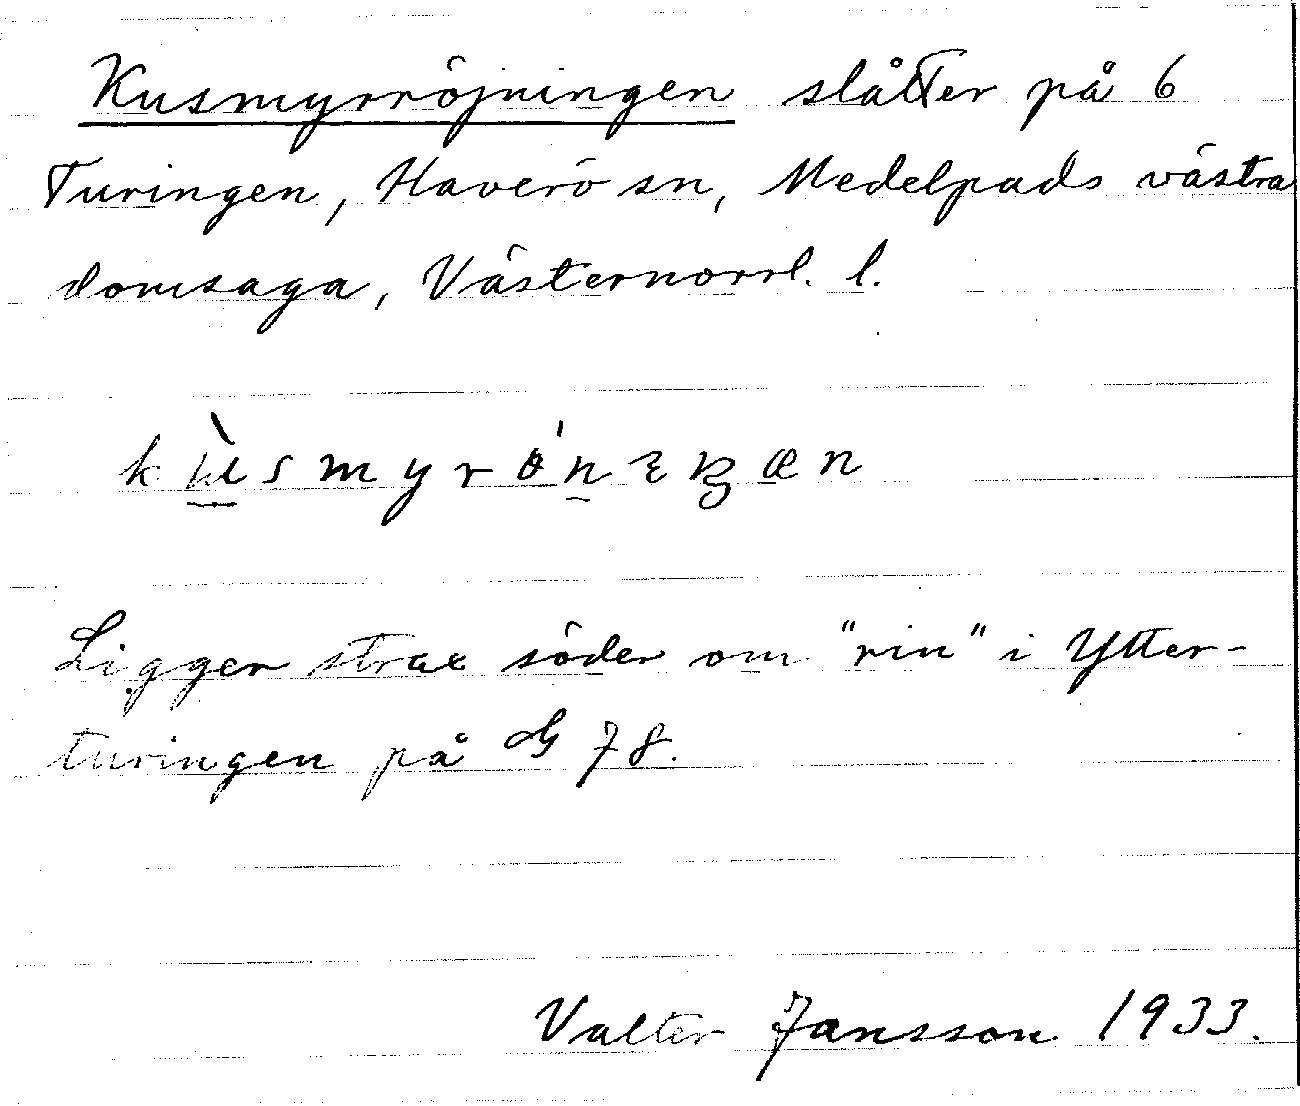 Kusmyrröjningen slåtter på 6
Turingen, Haverö sn, Medelpads västra
domsaga, Västernorrl. l.
Ligger strax söder om "rin" i Ytter-
turingen på G 78.
Valter Jansson 1933.